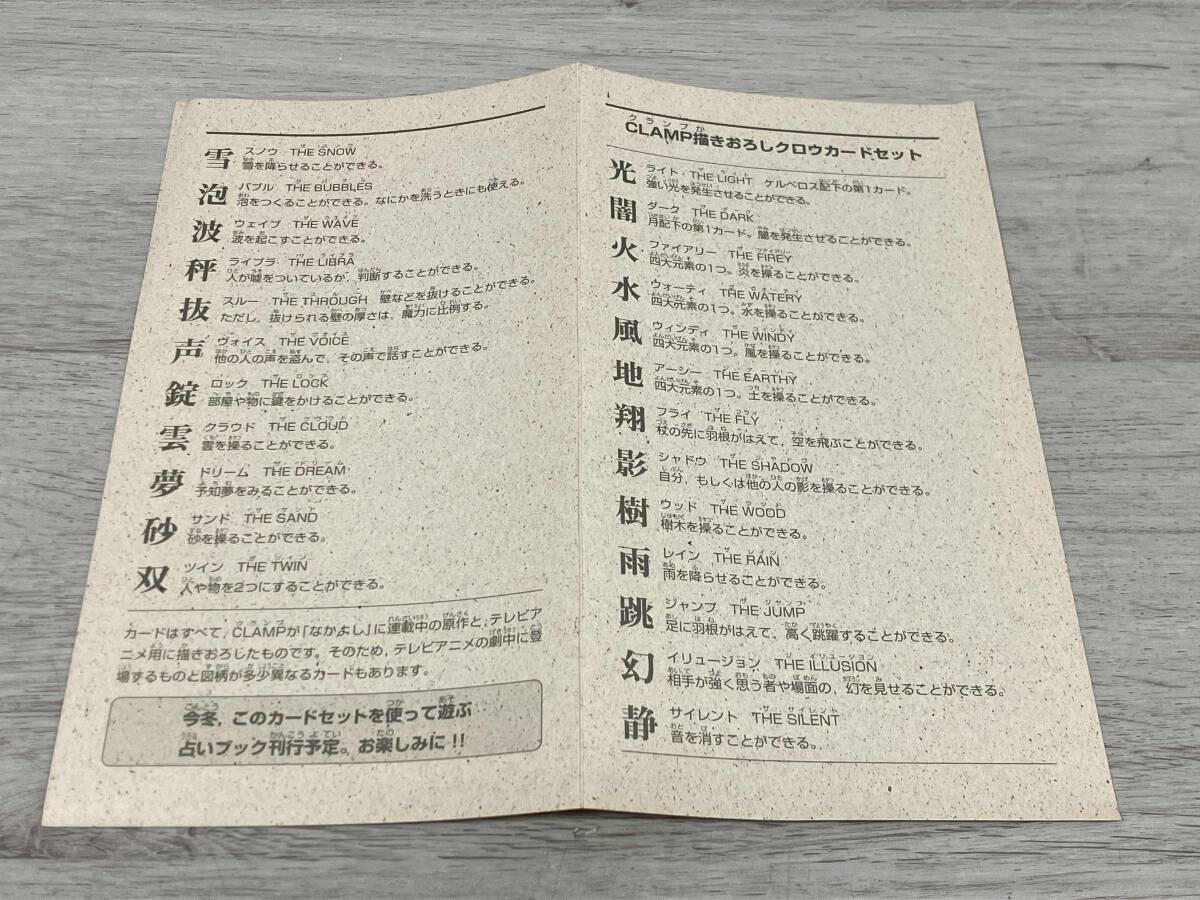 CLAMP描きおろしクロウカードセット
光 ライト THE LIGHT ケルベロス配下の第1カード。
強い光を発生させることができる。
闇 ダーク THE DARK
月配下の第1カード。闇を発生させることができる。
火 ファイアリー THE FIREY
四大元素の1つ。炎を操ることができる。
水 ウォーティ THE WATERY
四大元素の1つ。水を操ることができる。
風 ウィンディ THE WINDY
四大元素の1つ。風を操ることができる。
地 アーシー THE EARTHY
四大元素の1つ。土を操ることができる。
翔 フライ THE FLY
杖の先に羽根がはえて、空を飛ぶことができる。
影 シャドウ THE SHADOW
自分，もしくは他の人の影を操ることができる。
樹 ウッド THE WOOD
樹木を操ることができる。
雨 レイン THE RAIN
雨を降らせることができる。
跳 ジャンプ THE JUMP
足に羽根がはえて、高く跳躍することができる。
幻 イリュージョン THE ILLUSION
相手が強く思う者や場面の，幻を見せることができる。
静 サイレント THE SILENT
音を消すことができる。
雪 スノウ THE SNOW
雪を降らせることができる。
泡 バブル THE BUBBLES
泡をつくることができる。なにかを洗うときにも使える。
波 ウェイブ THE WAVE
波を起こすことができる。
秤 ライブラ THE LIBRA
人が嘘をついているか，判断することができる。
抜 スルー THE THROUGH 壁などを抜けることができる。
ただし，抜けられる壁の厚さは，魔力に比例する。
声 ヴォイス THE VOICE
他の人の声を盗んで，その声で話すことができる。
錠 ロック THE LOCK
部屋や物に鍵をかけることができる。
雲 クラウド THE CLOUD
雲を操ることができる。
夢 ドリーム THE DREAM
予知夢をみることができる。
砂 サンド THE SAND
砂を操ることができる。
双 ツイン THE TWIN
人や物を2つにすることができる。
カードはすべて，CLAMPが「なかよし」に連載中の原作と，テレビア
ニメ用に描きおろしたものです。そのため，テレビアニメの劇中に登
場するものと図柄が多少異なるカードもあります。
今冬，このカードセットを使って遊ぶ
占いブック刊行予定。お楽しみに!!